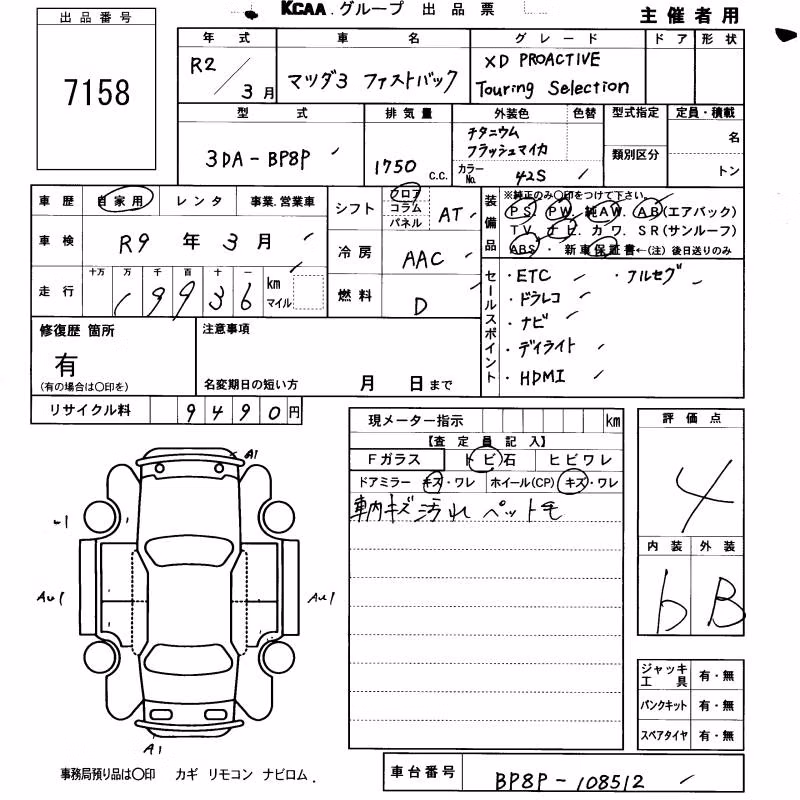 KCAA.グループ 出品票
主催者用
出品番号
7158
年式 車名 グレード ドア 形状
R2/3月 マツダ3 ファストバック XD PROACTIVE
Touring Selection
型式 排気量 外装色 色替 型式指定 定員・積載
3DA-BP8P 1750 c.c. チタニウム
フラッシュマイカ
カラーNo. 42S 類別区分 名
トン
車歴 自家用 レンタ 事業.営業車
車検 R9年3月
走行 十万 万 千 百 十 一
19936 km
マイル
シフト フロア コラム・パネル AT
冷房 AAC
燃料 D
装備品 ※純正のみ○印をつけて下さい。
PS. PW. 純AW. AB(エアバック)
TV. ナビ. カワ. SR(サンルーフ)
ABS ・ 新車保証書←(注)後日送りのみ
セールスポイント
・ETC ・フルセグ
・ドラレコ
・ナビ
・デイライト
・HDMI
修復歴 箇所
有
(有の場合は○印を)
注意事項
名変期日の短い方 月 日まで
リサイクル料 9490円
現メーター指示 km
【査定員記入】
Fガラス トビ石 ヒビワレ
ドアミラー キズ・ワレ ホイール(CP) キズ・ワレ
車内キズ 汚れ ペット毛
評価点
4
内装 外装
b B
A1
AU1 AU1
A1
ジャッキ工具 有・無
パンクキット 有・無
スペアタイヤ 有・無
事務局預り品は○印 カギ リモコン ナビロム.
車台番号 BP8P-108512